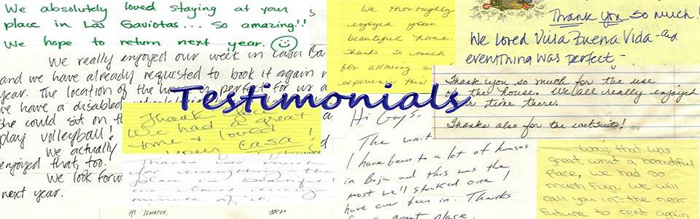 We absolutely loved staying at your
place in Las Gaviotas... So amazing!!
We hope to return next year.
We really enjoyed our week in
and we have already requested to book it again
year. The location of the
we have a disabled
she could sit on
play volleyball!
We actually
enjoyed that, too!
We look
next year.
Testimonials
Thank
We had a great
time & loved
your casa!
We thoroughly
enjoyed your
beautiful home.
Thanks so much
for allowing
experience this
Hi Guys,
The unit
I have been to a lot of houses
in Baja and this was the
most well stocked one I
have ever been in. Thanks
for a great place.
Thank you so much
We loved Villa Buena Vida -
everything was perfect -
Thank you so much for the use
of the house. We all really enjoyed
our time there.
Thanks also for the website!
was
great, what a beautiful
place, we had so
much fun. We will
call you in the near
future